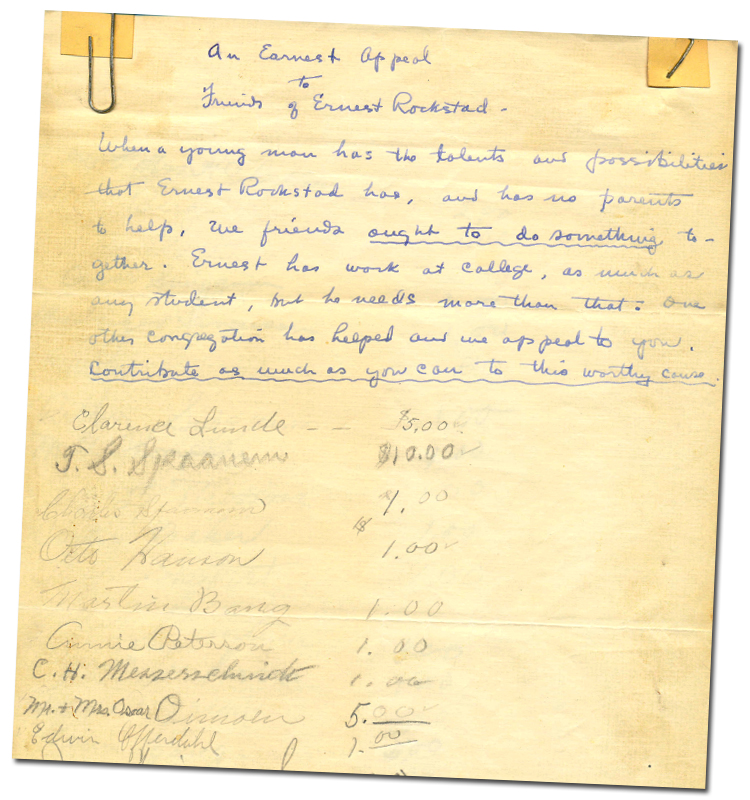 An Earnest Appeal
to
Friends of Ernest Rockstad -
When a young man has the talents and possibilities
that Ernest Rockstad has, and has no parents
to help, we friends ought to do something to-
gether. Ernest has work at college, as much as
any student, but he needs more than that. One
other congregation has helped and we appeal to you.
Contribute as much as you can to this worthy cause.
Clarence Lunde -- $5.00
T. S. Spaanem $10.00
Charles 1.00
Otto Hanson $1.00
Martin Bang 1.00
Annie Peterson 1.00
C. H. Messerschmidt 1.00
Mr. & Mrs. Oscar 5.00
Edwin Offerdahl 1.00